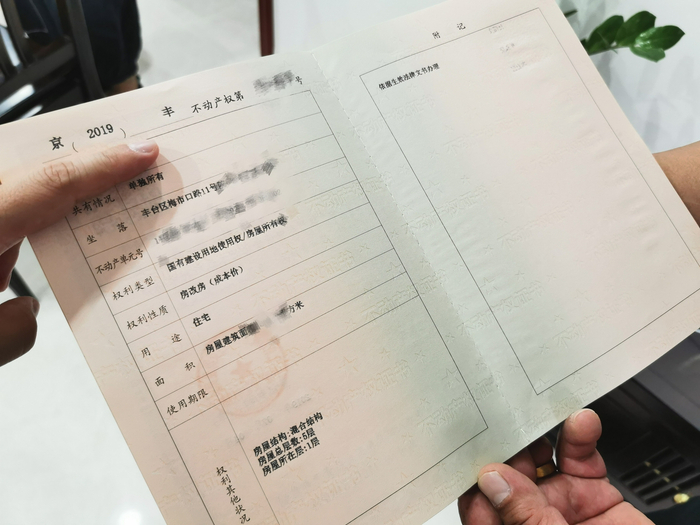 京(2019)丰不动产权第 号
共有情况 单独所有
坐落 丰台区梅市口路11号
不动产单元号 1
权利类型 国有建设用地使用权/房屋所有权
权利性质 房改房(成本价)
用途 住宅
面积 房屋建筑面 方米
使用期限
权利其他状况
房屋结构:混合结构
房屋总层数:5层
房屋所在层:1层
附记
依据生效法律文书办理